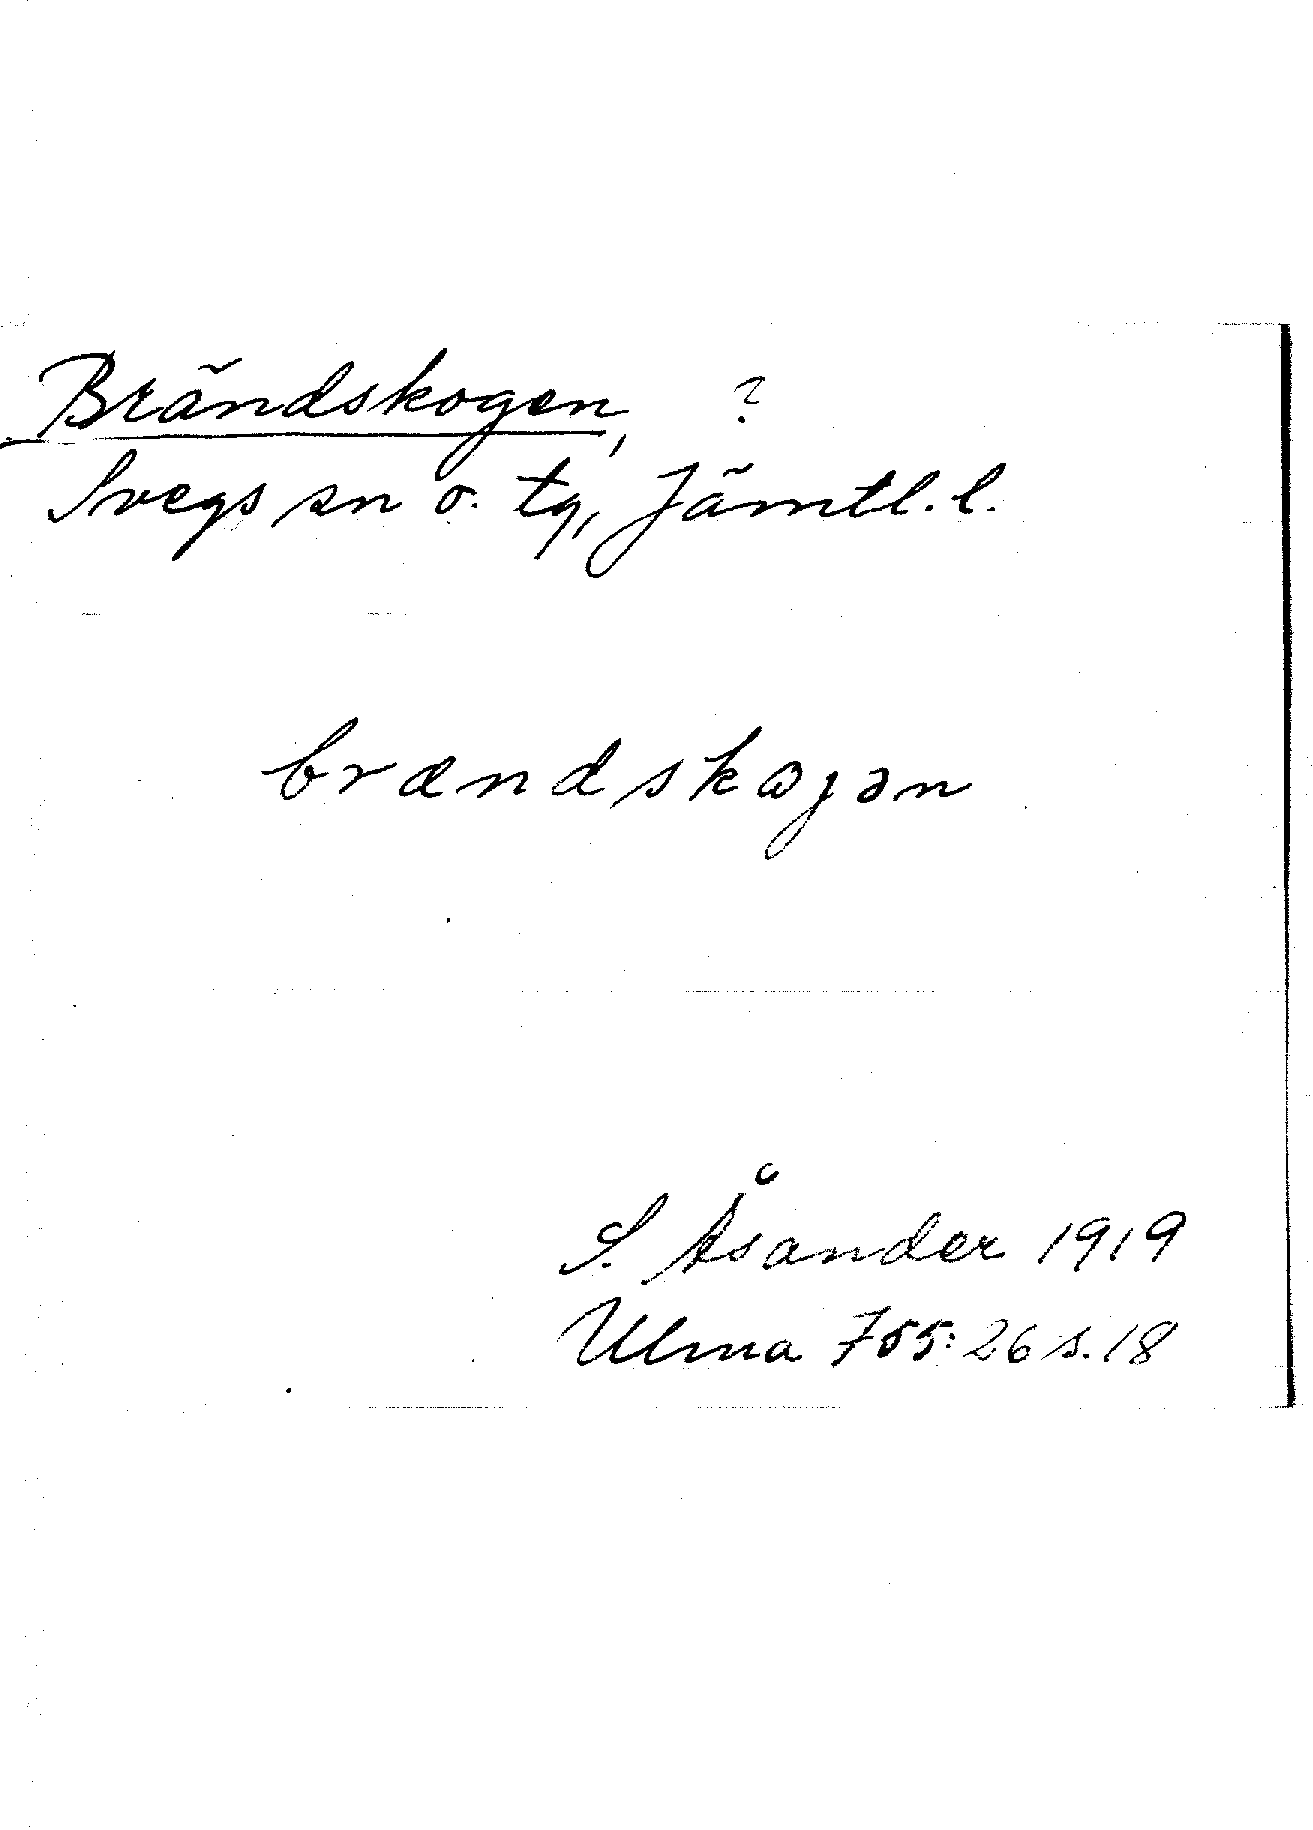 Brändskogen, ?
Svegs sn o. tg, Jämtl. l.
brændskɷjən
S. Åsander 1919
Ulma 755:26 s. 18